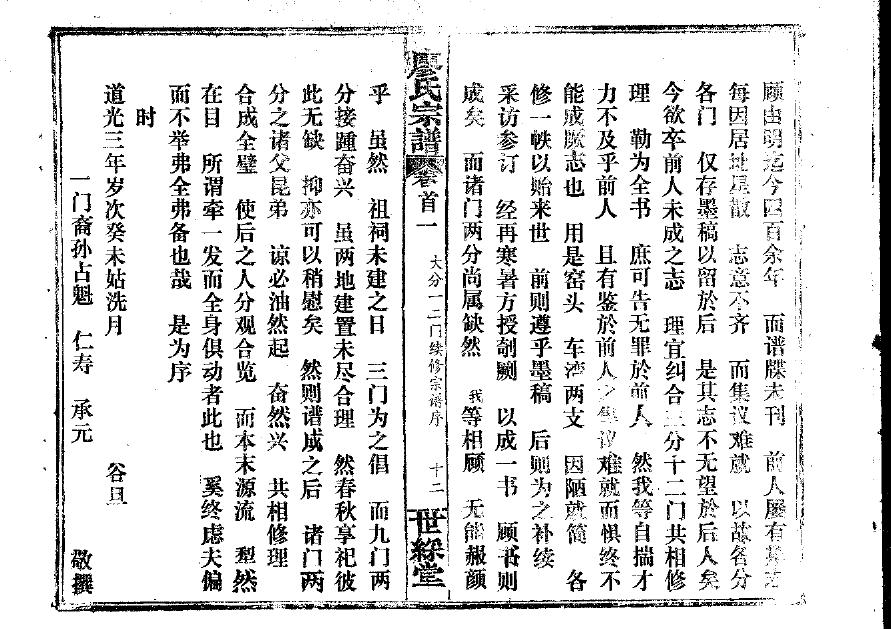 顾由明迄今四百余年 而谱牒未刊 前人屡有其志
每因居址星散 志意不齐 而集议难就 以故各分
各门 仅存墨稿以留於后 是其志不无望於后人矣
今欲卒前人未成之志 理宜纠合三分十二门共相修
理 勒为全书 庶可告无罪於前人 然我等自揣才
力不及乎前人 且有鉴於前人之集议难就而惧终不
能成厥志也 用是窑头 车湾两支 因陋就简 各
修一帙以贻来世 前则遵乎墨稿 后则为之补续
采访参订 经再寒暑方授剞劂 以成一书 顾书则
成矣 而诸门两分尚属缺然 我等相顾 无能赧颜
廖氏宗谱 卷首一 大分一二门续修宗谱序 十二 世綵堂
乎 虽然 祖祠未建之日 三门为之倡 而九门两
分接踵奋兴 虽两地建置未尽合理 然春秋享祀彼
此无缺 抑亦可以稍慰矣 然则谱成之后 诸门两
分之诸父昆弟 谅必油然起 奋然兴 共相修理
合成全璧 使后之人分观合览 而本末源流 犁然
在目 所谓牵一发而全身俱动者此也 奚终虑夫偏
而不举弗全弗备也哉 是为序
时
道光三年岁次癸未姑洗月 谷旦
一门裔孙占魁 仁寿 承元 敬撰